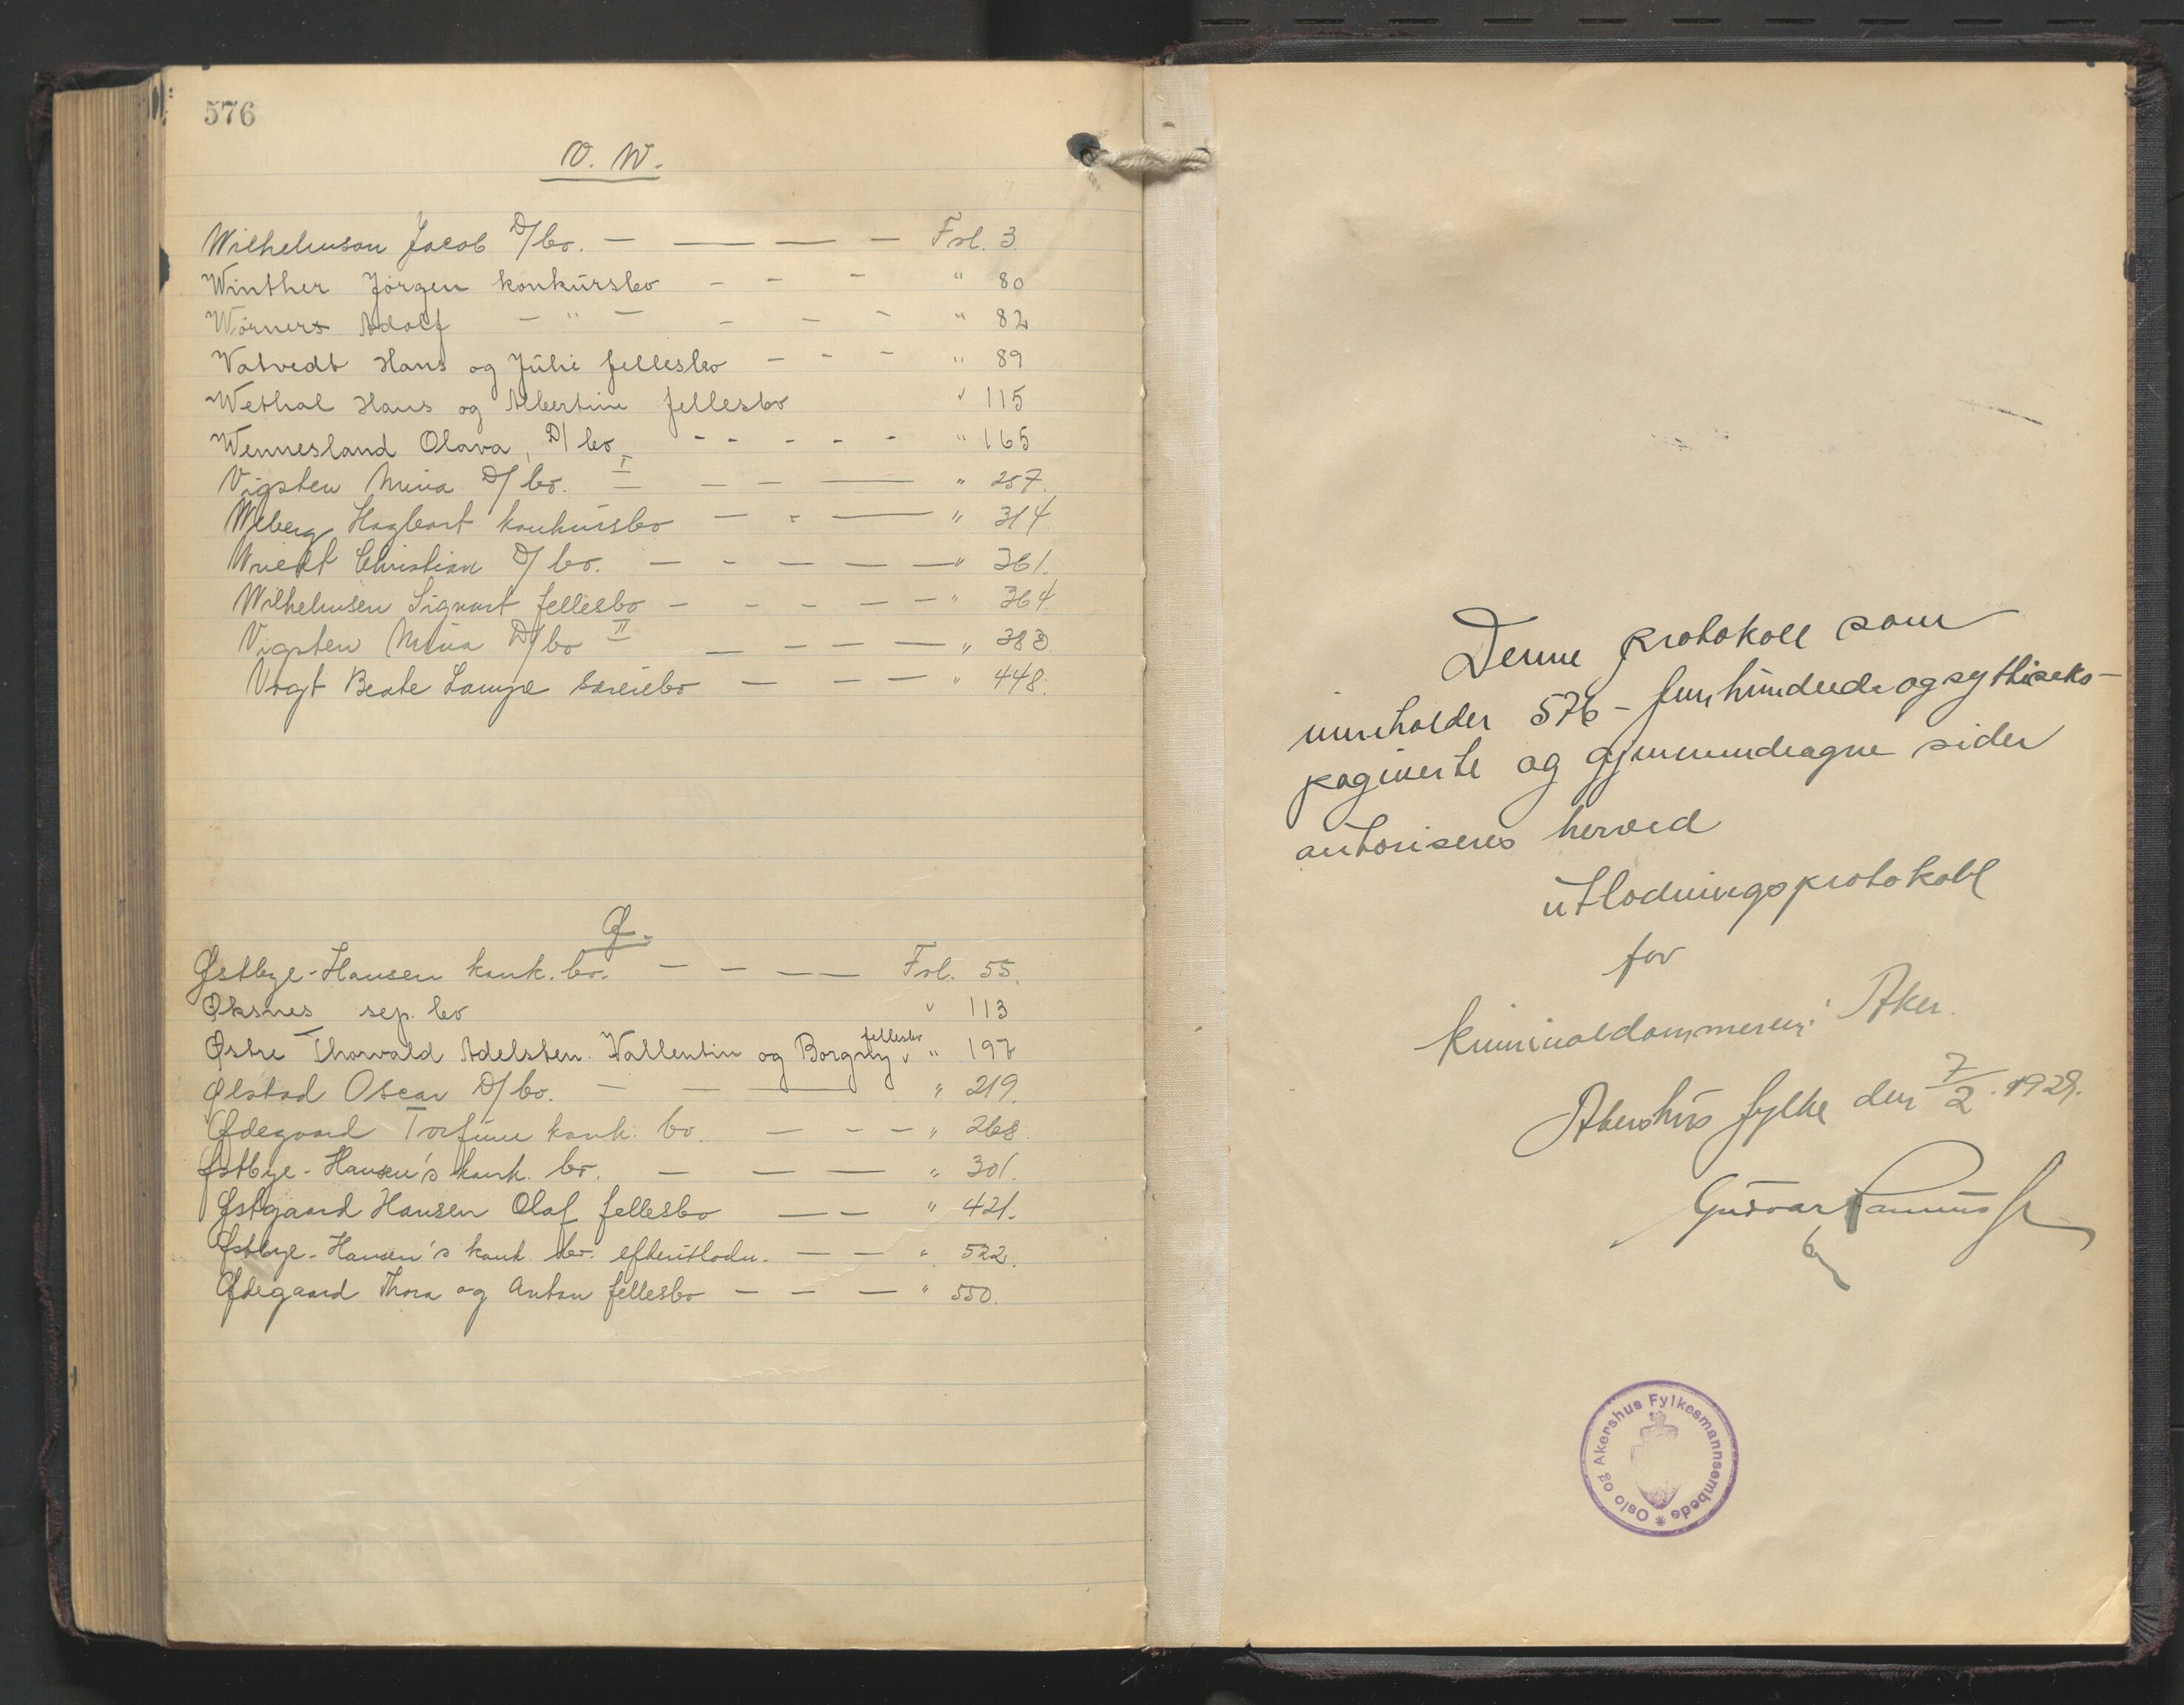 576
V. W.
Wilhelmson Jacob D/bo. — — — — Fol. 3.
Winther Jörgen konkursbo - - - " 80
Wörners Adolf — " — - - - " 82
Vatvedt Hans og Julie fellesbo - - - " 89
Wethal Hans og Albertine fellesbo " 115
Wennesland Olava, D/bo - - - - - " 165
Vigsten Mina D/bo. I — — - — " 257.
Wiberg Hagbart konkursbo — - — " 314.
Wriedt Christian D/bo. — - — — — " 361.
Wilhelmsen Sigvart fellesbo — - - — — " 364.
Vigsten Mina D/bo II — - — — " 383.
Vogt Beate Lampe særeiebo — — — " 448.
Ø.
Østbye-Hansen konk. bo. — — — — Fol. 55.
Øksnes sep. bo " 113
fellesbo
Østre Thorvald Adelsten Vallentin og Borgny " 197
Ølstad Oscar D/bo. — — — " 219.
Ødegaard Torfinn konk. bo. — - — " 268.
Østbye-Hansen's konk. bo. — — — " 301.
Østgaard Hansen Olaf fellesbo — — " 421.
Østbye-Hansen's konk. bo. efterutlodn. — — " 522.
Ødegaard Thora og Anton fellesbo — — — " 550.
Denne protokoll som
inneholder 576 - femhundrede og syttiseks -
paginerte og gjennemdragne sider
autoriseres herved
utlodningsprotokoll
for
kriminaldommeren i Aker.
Akershus fylke den 7/2. 1929.
Oslo og Akershus Fylkesmannsembede *